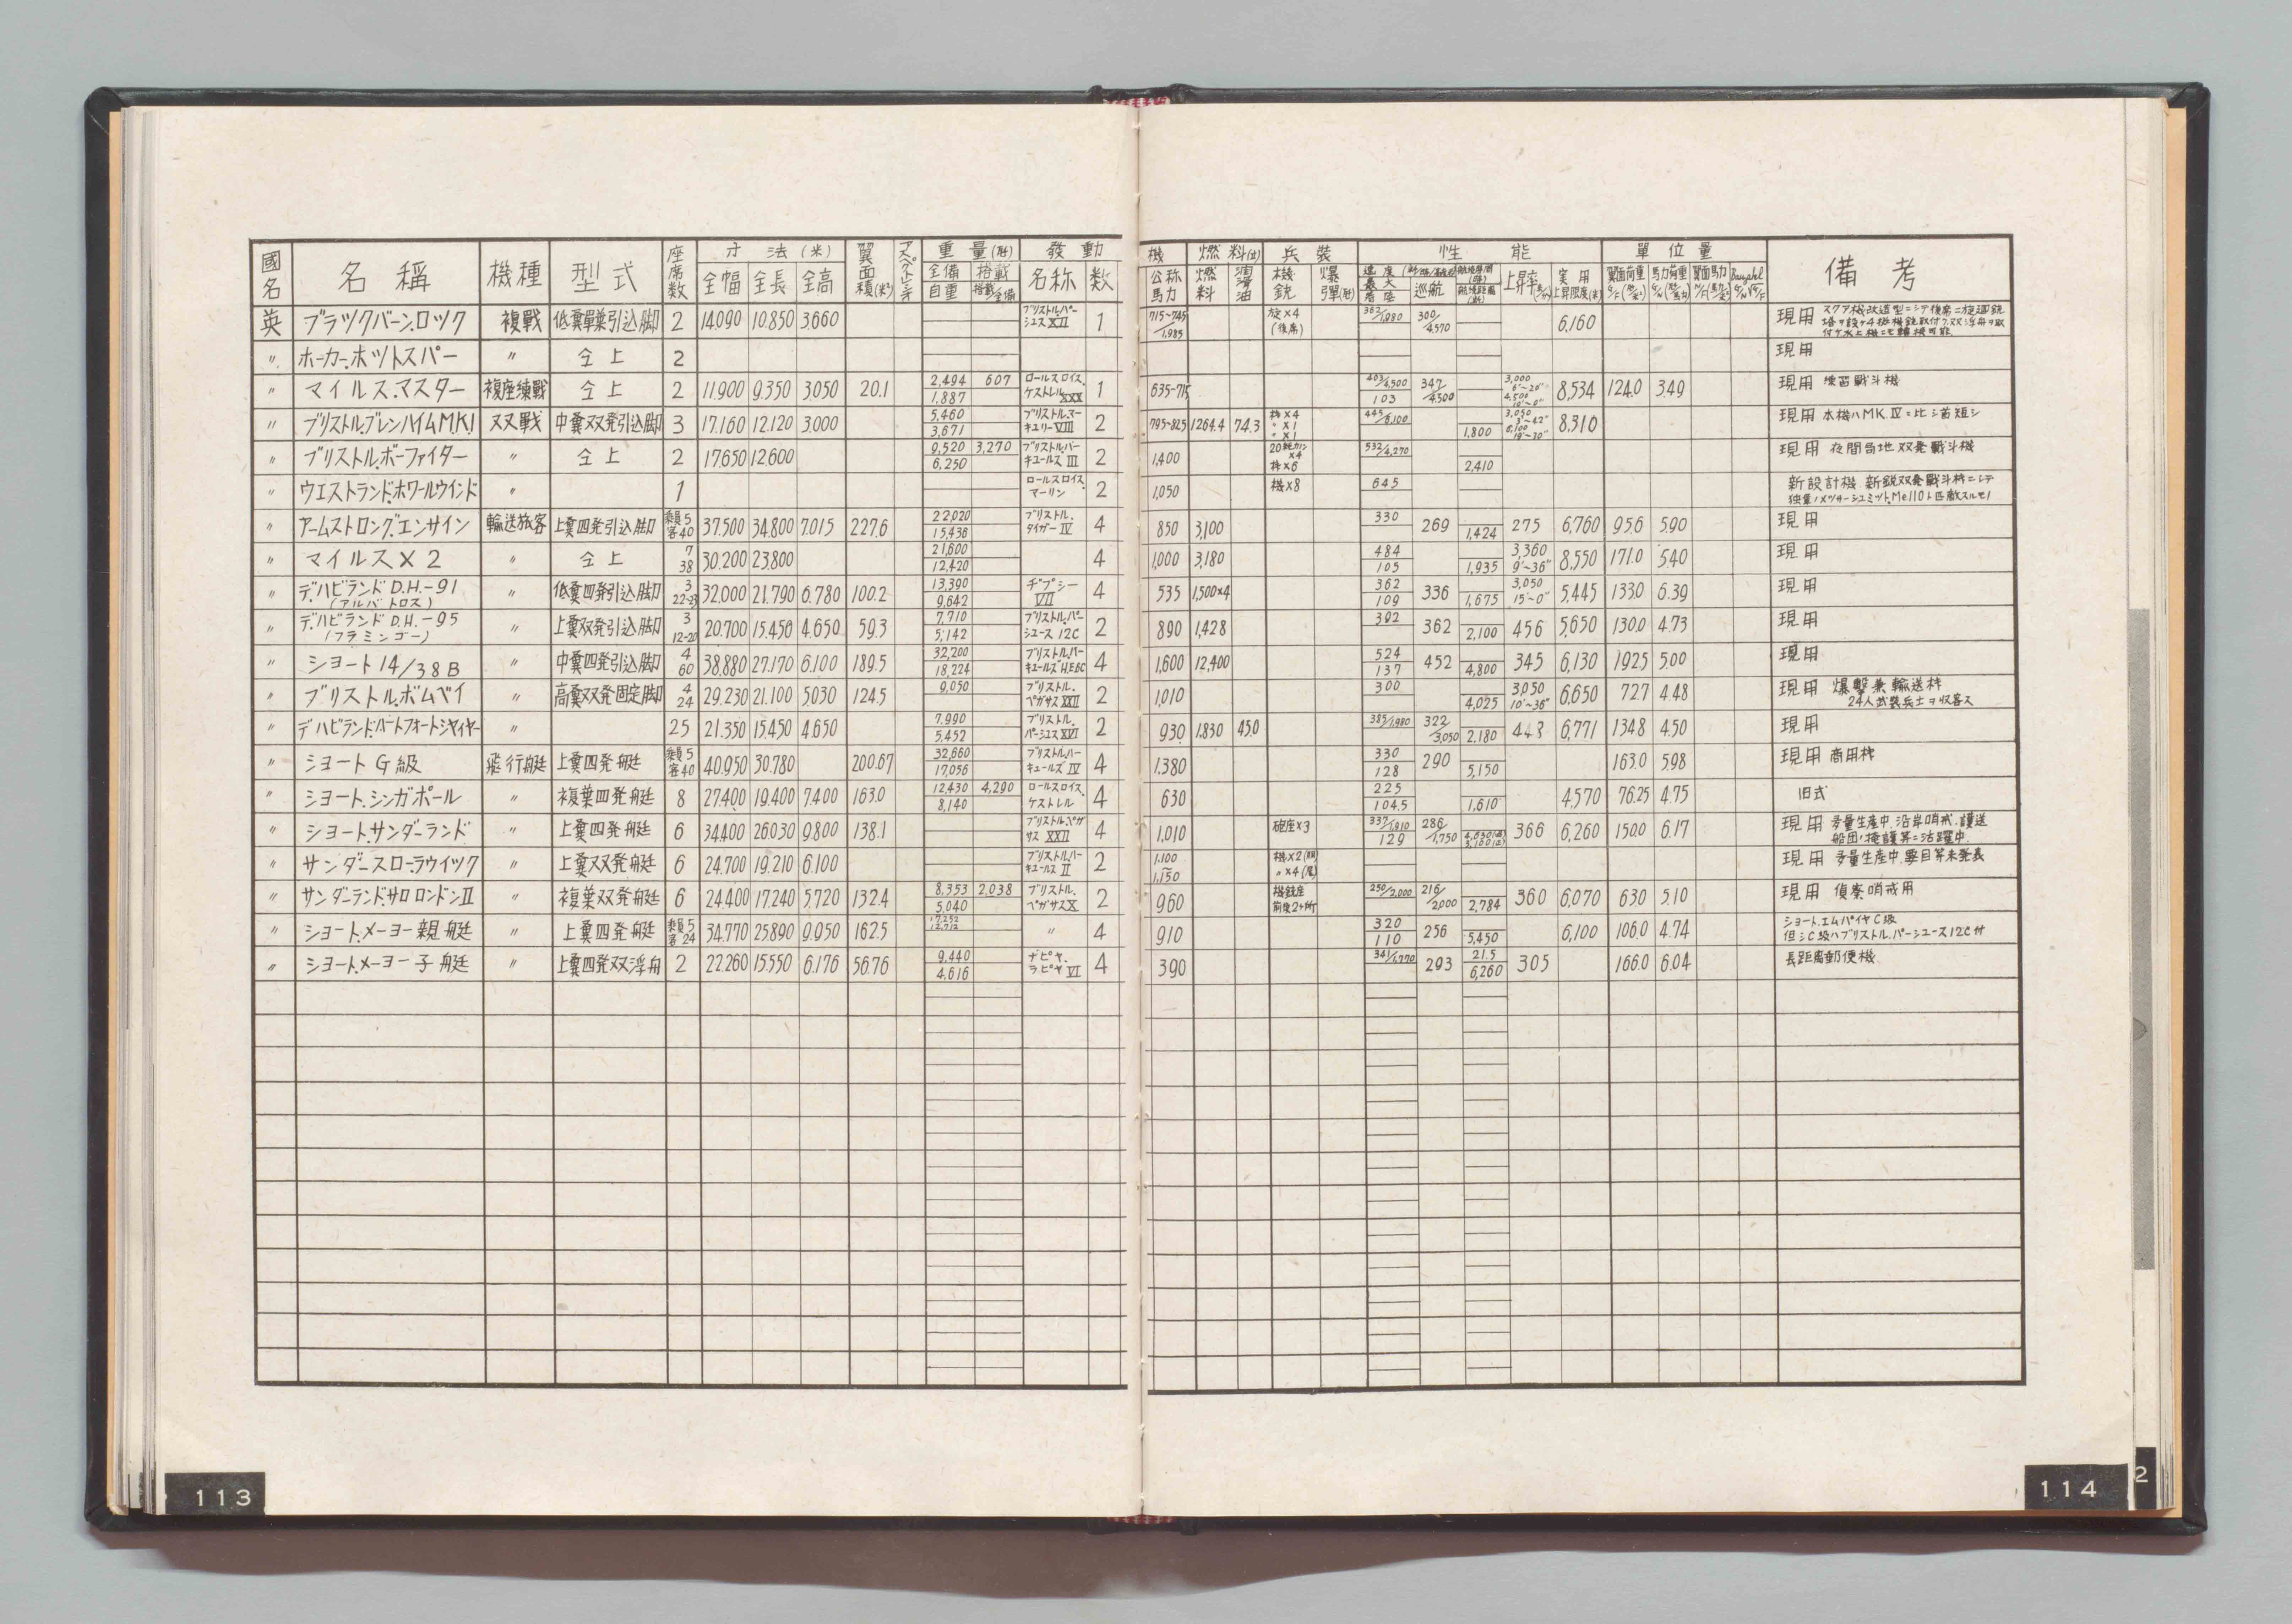 國名 名稱 機種 型式 座席数 寸法(米) 全幅 全長 全高 翼面積(米²) アスペクト比 重量(瓩) 全備 自重 搭載 搭載/全備 發動機 名称 数 公称馬力 燃料(立) 燃料 潤滑油 兵裝 機銃 爆彈(瓩) 性能 速度 最大 着陸 巡航 上昇率 実用上昇限度(米) 單位量 翼面荷重 馬力荷重 翼面馬力 備考
英 ブラツクバーン.ロツク 複戰 低翼單葉引込脚 2 14.090 10.850 3.660 ブリストルパーシユス XII 1 715~745/1,985 旋×4 (後席) 362/1,980 300/4,570 6,160 現用 スクア機改造型ニシテ後席ニ旋廻銃塔ヲ設ケ4挺機銃取付ク.双浮舟ヲ取付ケ水上機ニモ轉換可能
〃 ホーカー.ホツトスパー 〃 仝上 2 現用
〃 マイルス.マスター 複座練戰 仝上 2 11.900 9.350 3.050 20.1 2,494 607 1,887 ロールスロイス.ケストレル XXX 1 635~715 403/4,500 103 347/4,500 3,000 6'~20" 4,500 10'~0" 8,534 124.0 3.49 現用 練習戰斗機
〃 ブリストル.ブレンハイムM.K.1 双戰 中翼双発引込脚 3 17.160 12.120 3.000 5,460 3,671 ブリストル.マーキユリー VIII 2 795~825 1264.4 74.3 機×4 〃×1 〃×1 445/6,100 1,800 3,050 6,100 8,310 現用 本機ハMK.IVニ比シ首短シ
〃 ブリストル.ボーファイター 〃 仝上 2 17.650 12.600 9,520 3,270 6,250 ブリストル.ハーキユールス III 2 1,400 ×4 機×6 532/4,270 2,410 現用 夜間局地双発戰斗機
〃 ウエストランド.ホワールウインド 〃 1 ロールスロイス.マーリン 2 1,050 機×8 645 新設計機 新鋭双発戰斗機ニシテ独軍ノメツサーシユミツト.Me110ト匹敵スルモノ
〃 アームストロング.エンサイン 輸送旅客 上翼四発引込脚 乗員5 客40 37.500 34.800 7.015 227.6 22,020 15,436 ブリストル.タイガー IV 4 850 3,100 330 269 1,424 275 6,760 95.6 5.90 現用
〃 マイルスX2 〃 仝上 7 38 30.200 23.800 21,600 12,420 4 1,000 3,180 484 105 1,935 3,360 9'~36" 8,550 171.0 5.40 現用
〃 デ.ハビランド D.H.-91 (アルバトロス) 〃 低翼四発引込脚 3 22-23 32.000 21.790 6.780 100.2 13,390 9,642 ヂプシー VII 4 535 1,500×4 362 109 336 1,675 3,050 15'~0" 5,445 133.0 6.39 現用
〃 デ.ハビランド D.H.-95 (フラミンゴー) 〃 上翼双発引込脚 3 12-20 20.700 15.450 4.650 59.3 7,710 5,142 ブリストル.パーシユース 12C 2 890 1,428 392 362 2,100 456 5,650 130.0 4.73 現用
〃 シヨート 14/38B 〃 中翼四発引込脚 4 60 38.880 27.170 6.100 189.5 32,200 18,224 ブリストル.ハーキユールズ H.E.6C 4 1,600 12,400 524 137 452 4,800 345 6,130 192.5 5.00 現用
〃 ブリストル.ボムベイ 〃 高翼双発固定脚 4 24 29.230 21.100 5.030 124.5 9,050 ブリストル.ペガサス XXII 2 1,010 300 4,025 3,050 10'~36" 6,650 72.7 4.48 現用 爆擊兼輸送機 24人武裝兵士ヲ収容ス
〃 デハビランド.ハートフォートシヤイヤー 〃 25 21.350 15.450 4.650 7,990 5,452 ブリストル.パーシユス XVI 2 930 1,830 45.0 385/1,980 322/3,050 2,180 448 6,771 134.8 4.50 現用
〃 シヨート G級 飛行艇 上翼四発艇 乗員5 客40 40.950 30.780 200.67 32,660 17,056 ブリストル.ハーキユールズ IV 4 1,380 330 128 290 5,150 163.0 5.98 現用 商用機
〃 シヨート.シンガポール 〃 複葉四発艇 8 27.400 19.400 7.400 163.0 12,430 4,290 8,140 ロールスロイス.ケストレル 4 630 225 104.5 1,610 4,570 76.25 4.75 旧式
〃 シヨート.サンダーランド 〃 上翼四発艇 6 34.400 26.030 9.800 138.1 ブリストル.ペガサス XXII 4 1,010 砲座×3 337/1,910 129 286/1,750 366 6,260 150.0 6.17 現用 多量生産中.沿岸哨戒.護送船団ノ掩護等ニ活躍中
〃 サンダースローラウイツク 〃 上翼双発艇 6 24.700 19.210 6.100 ブリストル.ハーキユールス II 2 1,100 1,150 機×2(頭) 〃×4(尾) 現用 多量生産中.要目等未発表
〃 サンダーランド.サロ ロンドンII 〃 複葉双発艇 6 24.400 17.240 5.720 132.4 8,353 2,038 5,040 ブリストル.ペガサス X 2 960 機銃座 前後2ヶ所 250/2,000 216/2,000 2,784 360 6,070 63.0 5.10 現用 偵察哨戒用
〃 シヨート.メーヨー親艇 〃 上翼四発艇 乗員5 客24 34.770 25.890 9.950 162.5 17,252 12,712 〃 4 910 320 110 256 5,450 6,100 106.0 4.74 シヨート.エムパイヤC級 但シC級ハブリストル.パーシユース12C付
〃 シヨート.メーヨー子艇 〃 上翼四発双浮舟 2 22.260 15.550 6.176 56.76 9,440 4,616 ナピヤ.ラピヤ VI 4 390 341/1,770 293 21.5 6,260 305 166.0 6.04 長距離郵便機
113
114
2